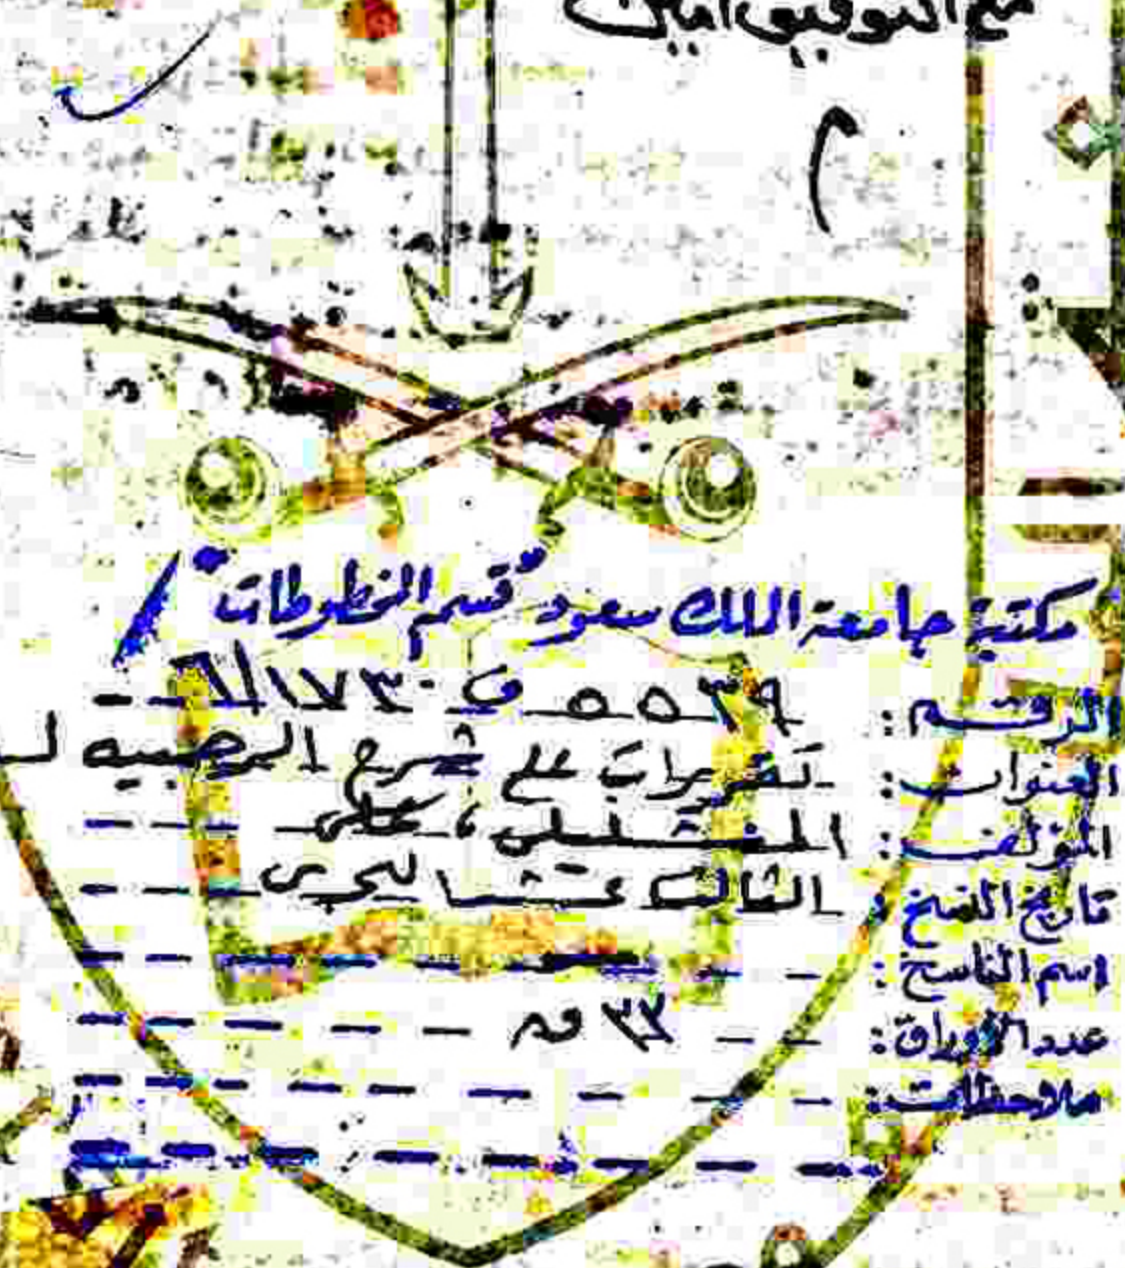 مع التوفيق آمين
مكتبة جامعة الملك سعود "قسم المخطوطات"
الرقم: ٥٥٣٩ ف ١٧٣٠/٦
العنوان: تقريرات على شرح الرحبيه لـ
المؤلف: ، على
تاريخ النسخ: الثالث عشر الهجرى
اسم الناسخ:
عدد الأوراق: ٣٣ ق
ملاحظات: